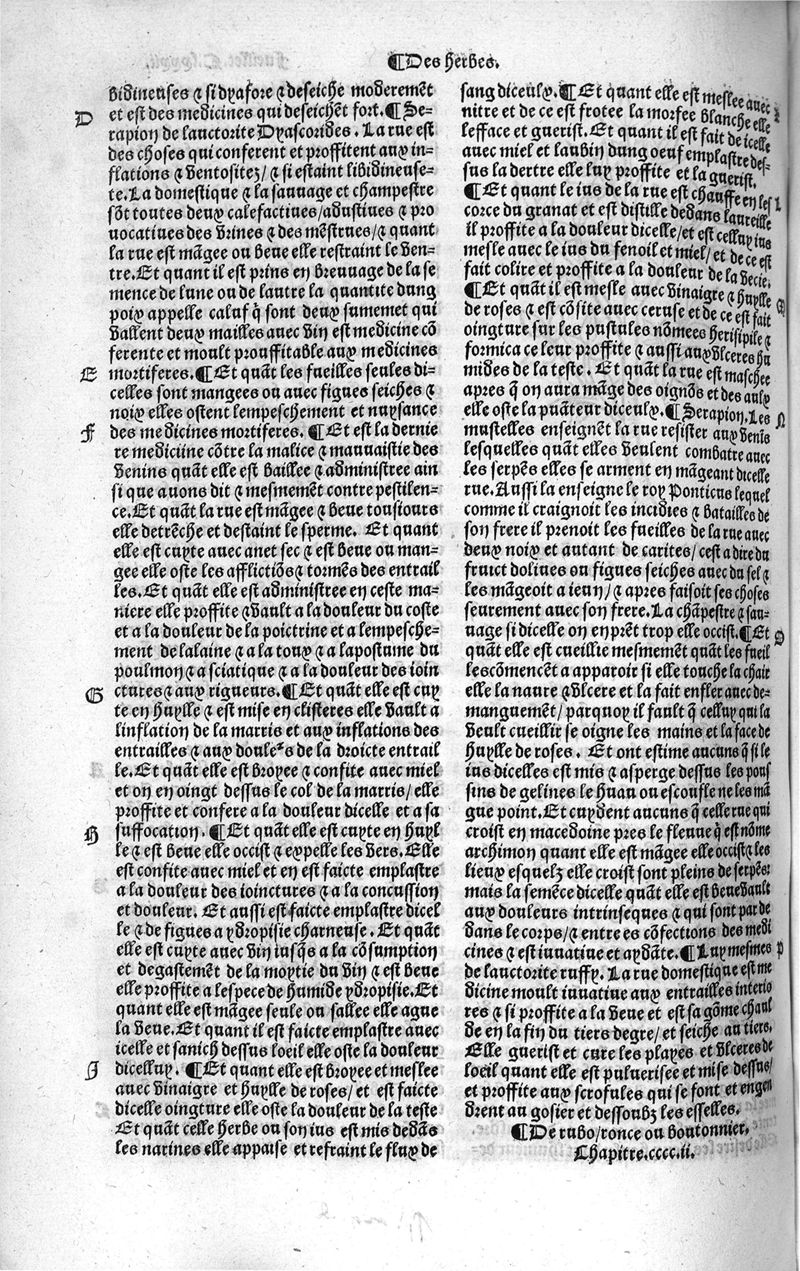 ¶Des herbes.
bidineuses ⁊ si dyafore ⁊ deseiche moderemēt
D
et est des medicines qui deseichēt fort. ¶Se-
rapion de lauctorite Dyascorides. La rue est
des choses qui conferent et proffitent aux in-
flations ⁊ ventositez/ ⁊ si estaint libidineuse-
te. La domestique ⁊ la sauuage et champestre
sōt toutes deux calefactiues/adustiues ⁊ pro
uocatiues des vrines ⁊ des mēstrues/⁊ quant
la rue est māgee ou beue elle restraint le ven-
tre. Et quant il est prins en breuuage de la se
mence de lune ou de lautre la quantite dung
poix appelle caluf q̄ sont deux sumemet qui
vallent deux mailles auec vin est medicine cō
ferente et moult prouffitable aux medicines
E
mortiferes. ¶Et quāt les fueilles seules di-
celles sont mangees ou auec figues seiches ⁊
noix elles ostent lempeschement et nuysance
F
des medicines mortiferes. ¶Et est la dernie
re mediciine cōtre la malice ⁊ mauuaistie des
venins quāt elle est baillee ⁊ administree ain
si que auons dit ⁊ mesmemēt contre pestilen-
ce. Et quāt la rue est māgee ⁊ beue tousiours
elle detrēche et destaint le sperme. Et quant
elle est cuyte auec anet sec ⁊ est beue ou man-
gee elle oste les afflictiōs ⁊ tormēs des entrail
les. Et quāt elle est administree en ceste ma-
niere elle proffite ⁊ vault a la douleur du coste
et a la douleur de la poictrine et a lempesche-
ment de lalaine ⁊ a la toux ⁊ a lapostume du
poulmon ⁊ a sciatique ⁊ a la douleur des ioin
G
ctures ⁊ aux rigueurs. ¶Et quāt elle est cuy
te en huylle ⁊ est mise en clisteres elle vault a
linflation de la marris et aux inflations des
entrailles ⁊ aux doule~s de la droicte entrail
le. Et quāt elle est broyee ⁊ confite auec miel
et on en oingt dessus le col de la marris/ elle
proffite et confere a la douleur dicelle et a sa
H
suffocation. ¶Et quāt elle est cuyte en huyl
le ⁊ est beue elle occist ⁊ expelle les vers. Elle
est confite auec miel et en est faicte emplastre
a la douleur des ioinctures ⁊ a la concussion
et douleur. Et aussi est faicte emplastre dicel
le ⁊ de figues a ydropisie charneuse. Et quāt
elle est cuyte auec vin iusq̄s a la cōsumption
et degastemēt de la moytie du vin ⁊ est beue
elle proffite a lespece de humide ydropisie. Et
quant elle est māgee seule ou sallee elle ague
la veue. Et quant il est faicte emplastre auec
icelle et sanich dessus loeil elle oste la douleur
J
dicelluy. ¶Et quant elle est broyee et meslee
auec vinaigre et huylle de roses/ et est faicte
dicelle oingture elle oste la douleur de la teste
Et quāt celle herbe ou son ius est mis dedās
les narines elle appaise et refraint le flux de
sang diceulx. ¶Et quant elle est meslee auec
nitre et de ce est frotee la morfee blanche elle
lefface et guerist. Et quant il est fait de icelle
auec miel et laubin dung oeuf emplastre des-
sus la dertre elle luy proffite et la guerist.
¶Et quant le ius de la rue est chauffe en les
L
corce du granat et est distille dedans laureille
il proffite a la douleur dicelle/et est celluy ius
mesle auec le ius du fenoil et miel/ et de ce est
fait colire et proffite a la douleur de la vecie.
¶Et quāt il est mesle auec vinaigre ⁊ huylle
de roses ⁊ est cōfite auec ceruse et de ce est fait
oingture sur les pustules nōmees herisipile ⁊
formica ce leur proffite ⁊ aussi aux vlceres hu
mides de la teste. Et quāt la rue est maschee
apres q̄ on aura māge des oignōs et des aulx
elle oste la puāteur diceulx. ¶Serapion. Les
N
mustelles enseignēt la rue resister aux venīs
lesquelles quāt elles veulent combatre auec
les serpēs elles se arment en māgeant dicelle
rue. Aussi la enseigne le roy Ponticus lequel
comme il craignoit les incidies ⁊ batailles de
son frere il prenoit les fueilles de la rue auec
deux noix et autant de carites/ cest a dire du
fruict doliues ou figues seiches auec du sel ⁊
les māgeoit a ieun/ ⁊ apres faisoit ses choses
seurement auec son frere. La chāpestre ⁊ sau-
uage si dicelle on en prēt trop elle occist. ¶Et
O
quāt elle est cueillie mesmement quāt les fueil
les cōmencēt a apparoir si elle touche la chair
elle la naure ⁊ vlcere et la fait enfler auec de-
manguemēt/ parquoy il fault q̄ celluy qui la
veult cueillir se oigne les mains et la face de
huylle de roses. Et ont estime aucuns q̄ si le
ius dicelles est mis ⁊ asperge dessus les pous
sins de gelines le huan ou escoufle ne les mā
gue point. Et cuydent aucuns q̄ celle rue qui
croist en macedoine pres le fleuue q̄ est nōme
archimon quant elle est māgee elle occist ⁊ les
lieux esquelz elle croist sont pleins de serpēs:
mais la semēce dicelle quāt elle est beue vault
aux douleurs intrinseques ⁊ qui sont par de
dans le corps/⁊ entre es cōfections des medi
cines ⁊ est iuuatiue et aydāte. ¶Luy mesmes
P
de lauctorite ruffy. La rue domestique est me
dicine moult iuuatiue aux entrailles interio
res ⁊ si proffite a la veue et est sa gōme chaul
de en la fin du tiers degre/ et seiche au tiers.
Elle guerist et cure les playes et vlceres de
loeil quant elle est puluerisee et mise dessus/
et proffite aux scrofules qui se font et engen
drent au gosier et dessoubz les esselles.
¶De rubo/ronce ou boutonnier.
Chapitre.cccc.ii.